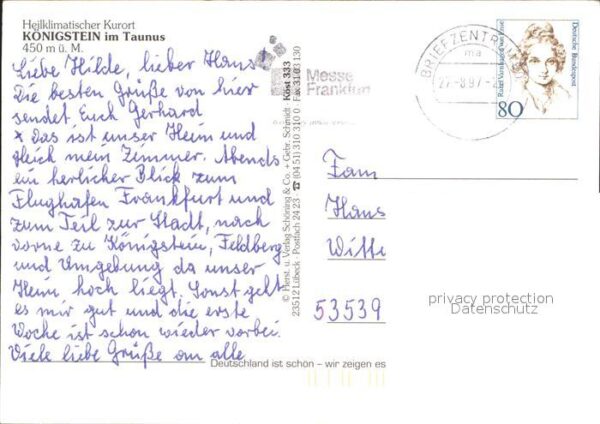 Heilklimatischer Kurort
KÖNIGSTEIN im Taunus
450 m ü. M.
Liebe Hilde, lieber Hans
Die besten Grüße von hier
sendet Euch Gerhard
x Das ist unser Heim und
gleich mein Zimmer. Abends
ein herlicher Blick zum
Flughafen Frankfurt und
zum Teil zur Stadt, nach
vorne zu Königstein, Feldberg
und Umgebung da unser
Heim hoch liegt. Sonst geht
es mir gut und die erste
Woche ist schon wieder vorbei.
Viele liebe Grüße an alle
Deutschland ist schön – wir zeigen es
© Herst. u. Verlag Schöning & Co. + Gebr. Schmidt · Köst 333
23512 Lübeck · Postfach 24 23 · ☎ (04 51) 310 310 · Fax
Messe
Frankfurt
BRIEFZENTRUM
ma
Deutsche Bundespost
80
Fam
Hans
Witte
53539
privacy protection
Datenschutz